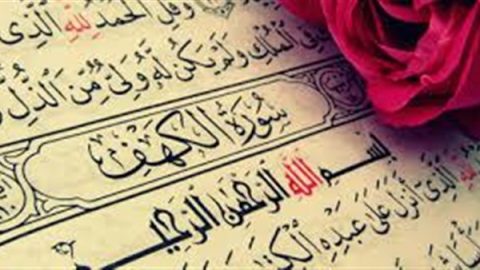 وَقُلِ الْحَمْدُ لِلَّهِ الَّذِي
فِي الْمُلْكِ وَلَمْ يَكُن لَّهُ وَلِيٌّ مِّنَ الذُّلِّ
سُورَةُ الْكَهْفِ
بِسْمِ اللَّهِ الرَّحْمَٰنِ الرَّحِيمِ
لِلَّهِ الَّذِي أَنزَلَ عَلَىٰ عَبْدِهِ الْكِتَابَ